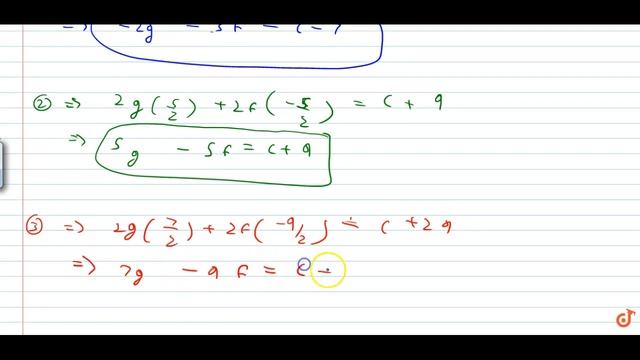 ⇒ -2g - 5f = c - 7
② ⇒ 2g(5/2) + 2f(-5/2) = c + 9
⇒ 5g - 5f = c + 9
③ ⇒ 2g(7/2) + 2f(-9/2) = c + 29
⇒ 7g - 9f = c -